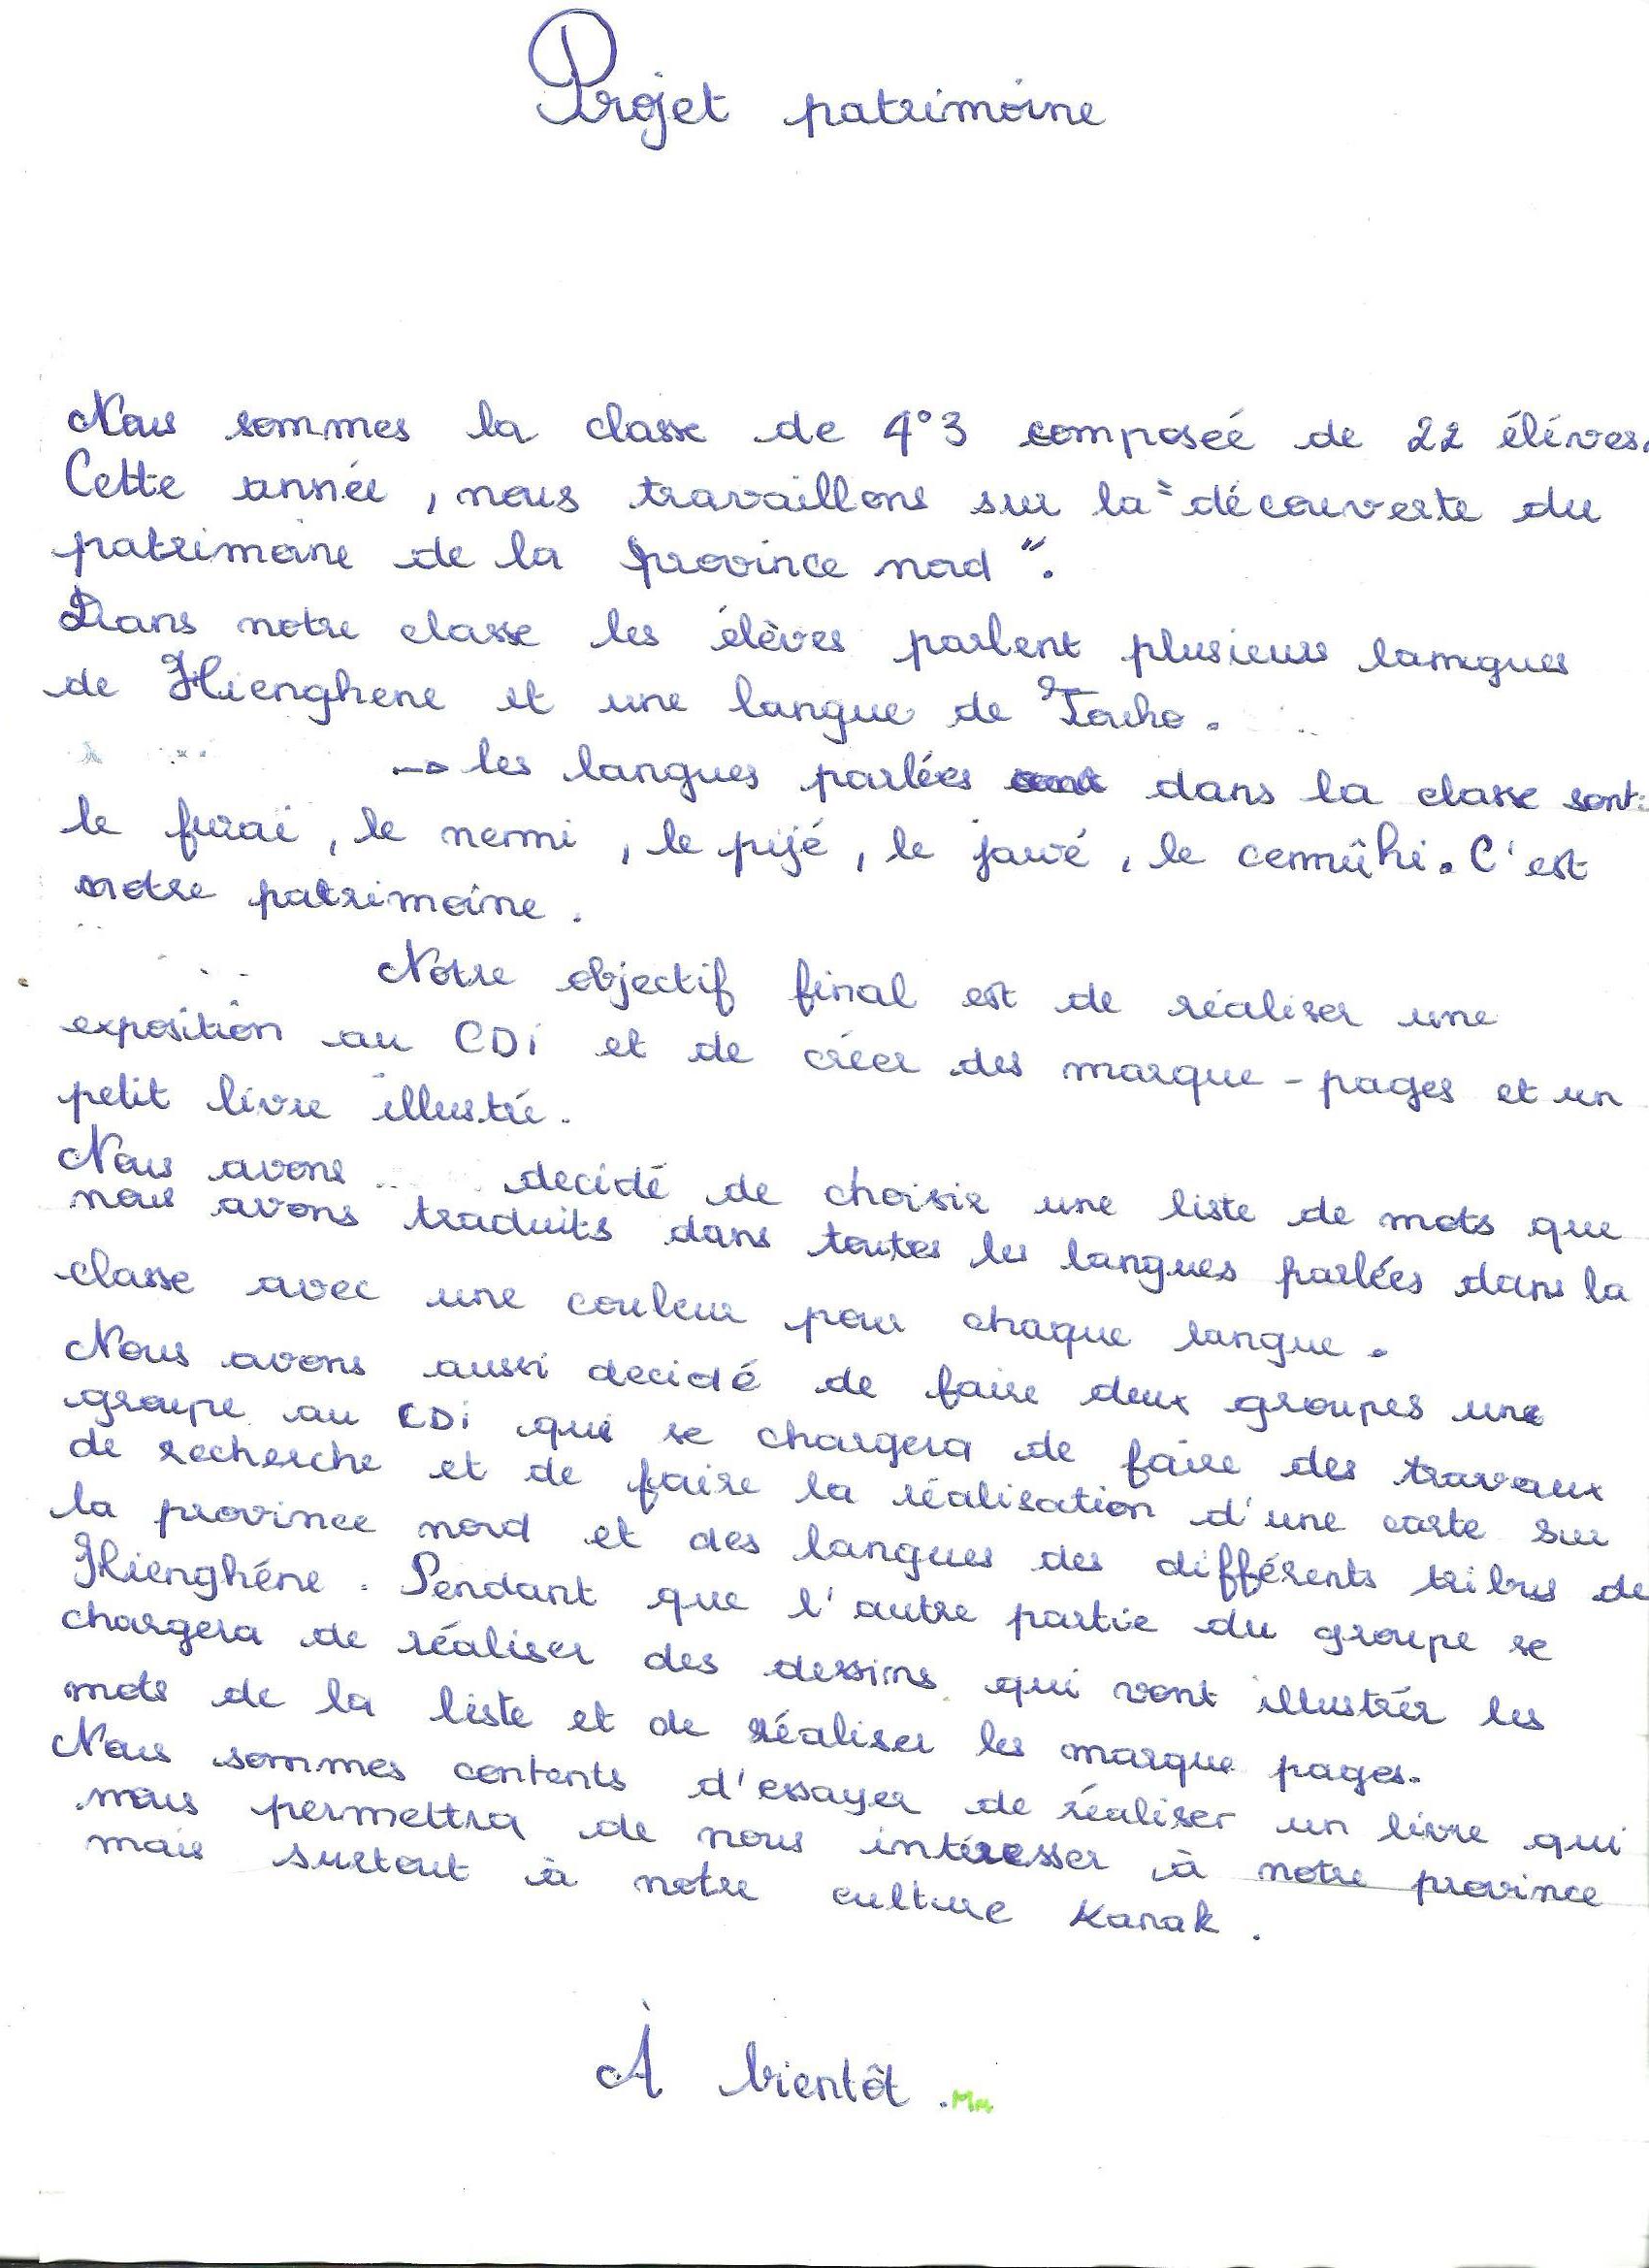 Projet patrimoine
Nous sommes la classe de 4°3 composeé de 22 éléves.
Cette année, nous travaillons sur la "découverte du
patrimoine de la province nord".
Dans notre classe les élèves parlent plusieurs langues
de Hienghene et une langue de Touho.
→ les langues parlées dans la classe sont:
le fwaî, le nemi, le pijé, le jawé, le cemûhi. C'est
notre patrimoine.
Notre objectif final est de réaliser une
exposition au CDi et de créer des marque-pages et un
petit livre illustré.
Nous avons decidé de choisir une liste de mots que
nous avons traduits dans toutes les langues parlées dans la
classe avec une couleur pour chaque langue.
Nous avons aussi decidé de faire deux groupes une
groupe au CDi qui se chargera de faire des travaux
de recherche et de faire la réalisation d'une carte sur
la province nord et des langues des différents tribus de
Hienghéne. Pendant que l'autre partie du groupe se
chargera de réaliser des dessins qui vont illustrér les
mots de la liste et de réaliser les marque pages.
Nous sommes contents d'essayer de réaliser un livre qui
nous permettra de nous intéresser à notre province
mais surtout à notre culture Kanak.
À bientôt.